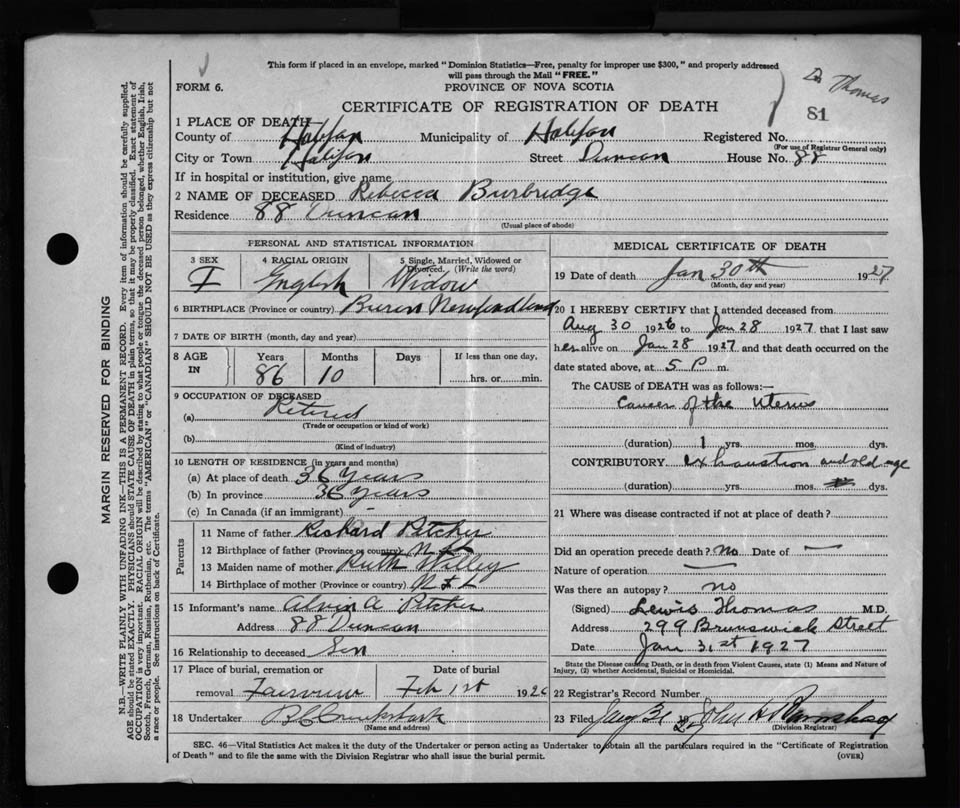 This form if placed in an envelope, marked "Dominion Statistics—Free, penalty for improper use $300," and properly addressed
will pass through the Mail "FREE."
Dr Thomas
FORM 6.
PROVINCE OF NOVA SCOTIA
CERTIFICATE OF REGISTRATION OF DEATH
81
1 PLACE OF DEATH
County of Halifax Municipality of Halifax Registered No.
(For use of Registrar General only)
City or Town Halifax Street Duncan House No. 88
If in hospital or institution, give name
2 NAME OF DECEASED Rebecca Burbridge
Residence 88 Duncan
(Usual place of abode)
PERSONAL AND STATISTICAL INFORMATION
3 SEX 4 RACIAL ORIGIN 5 Single, Married, Widowed or Divorced. (Write the word)
F English Widow
6 BIRTHPLACE (Province or country) Burin Newfoundland
7 DATE OF BIRTH (month, day and year)
8 AGE IN Years Months Days If less than one day,
86 10 hrs. or min.
9 OCCUPATION OF DECEASED
(a) Retired
(Trade or occupation or kind of work)
(b)
(Kind of industry)
10 LENGTH OF RESIDENCE (in years and months)
(a) At place of death 36 Years
(b) In province 36 Years
(c) In Canada (if an immigrant) -
Parents
11 Name of father Richard Pitcher
12 Birthplace of father (Province or country) Nfl
13 Maiden name of mother Ruth Willey
14 Birthplace of mother (Province or country) Nfl
15 Informant's name Alvin A Pitcher
Address 88 Duncan
16 Relationship to deceased Son
17 Place of burial, cremation or removal Fairview Date of burial Feb 1st 1926
18 Undertaker
(Name and address)
MEDICAL CERTIFICATE OF DEATH
19 Date of death Jan 30th 1927
(Month, day and year)
20 I HEREBY CERTIFY that I attended deceased from
Aug 30 1926 to Jan 28 1927 that I last saw
her alive on Jan 28 1927 and that death occurred on the
date stated above, at 5 P m.
The CAUSE of DEATH was as follows:—
Cancer of the Uterus
(duration) 1 yrs. mos. dys.
CONTRIBUTORY exhaustion and old age
(duration) yrs. mos. dys.
21 Where was disease contracted if not at place of death?
Did an operation precede death? No Date of —
Nature of operation —
Was there an autopsy? no
(Signed) Lewis Thomas M.D.
Address 299 Brunswick Street
Date Jan 31st 1927
State the Disease causing Death, or in death from Violent Causes, state (1) Means and Nature of
Injury, (2) whether Accidental, Suicidal or Homicidal.
22 Registrar's Record Number
23 Filed 31 27 John A
(Division Registrar)
SEC. 46—Vital Statistics Act makes it the duty of the Undertaker or person acting as Undertaker to obtain all the particulars required in the "Certificate of Registration
of Death" and to file the same with the Division Registrar who shall issue the burial permit. (OVER)
MARGIN RESERVED FOR BINDING
N.B.—WRITE PLAINLY WITH UNFADING INK—THIS IS A PERMANENT RECORD. Every item of information should be carefully supplied.
AGE should be stated EXACTLY. PHYSICIANS should STATE CAUSE OF DEATH in plain terms, so that it may be properly classified. Exact statement of
OCCUPATION is very important. RACIAL ORIGIN will be described by stating to what people or tongue the deceased person belonged, whether English, Irish,
Scotch, French, German, Russian, Ruthenian, etc. The terms "AMERICAN" or "CANADIAN" SHOULD NOT BE USED as they express citizenship but not
a race or people. See instructions on back of Certificate.